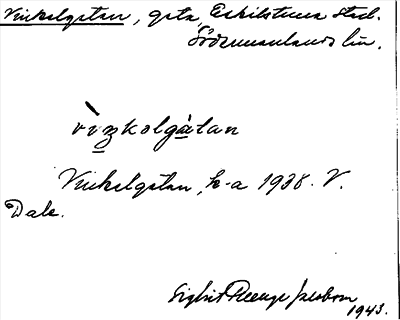 Vinkelgatan, gata, Eskilstuna stad.
Södermanlands län.
vìŋkəlgàtan
Vinkelgatan, k-a 1938. V.
Dale.
Sigbrit Plænge Jacobson
1943.